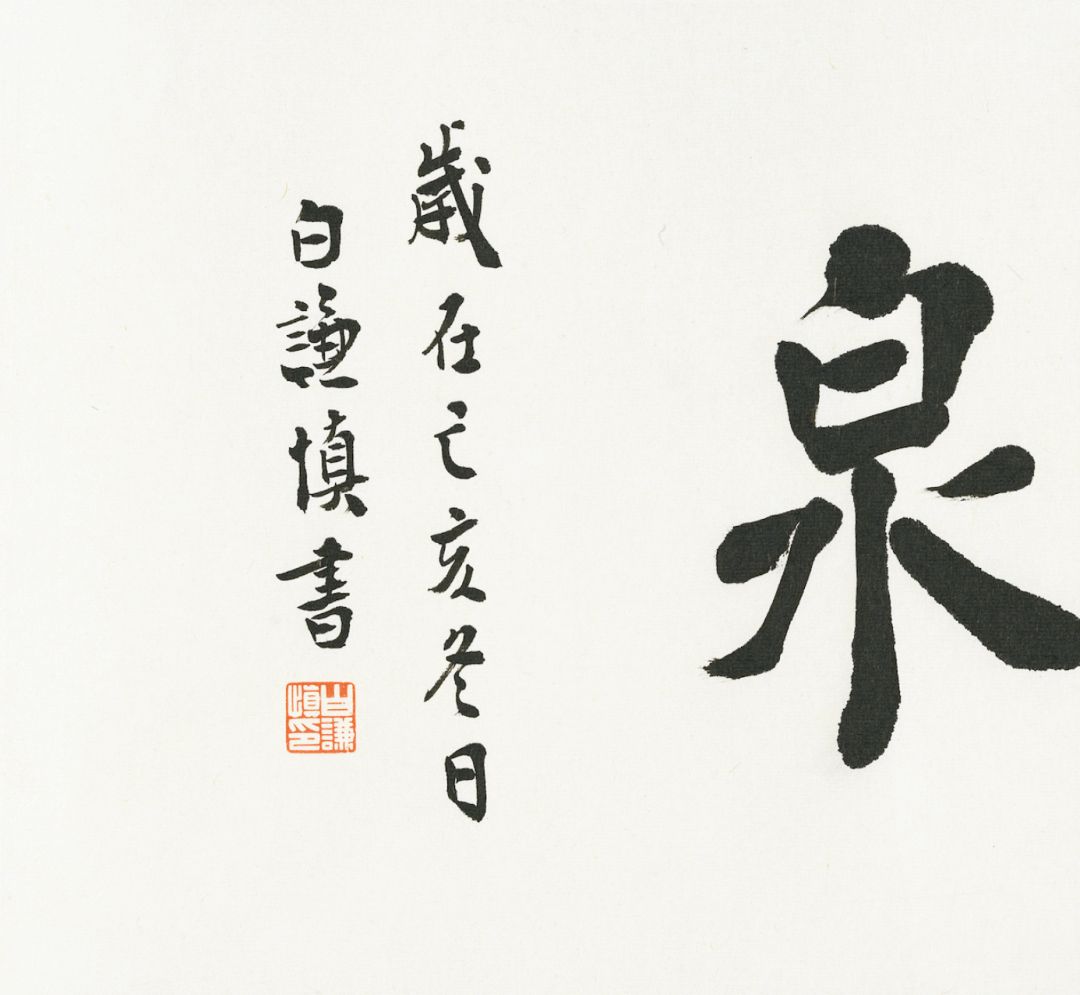 泉
歲在己亥冬日
白謙慎書
白謙
慎印